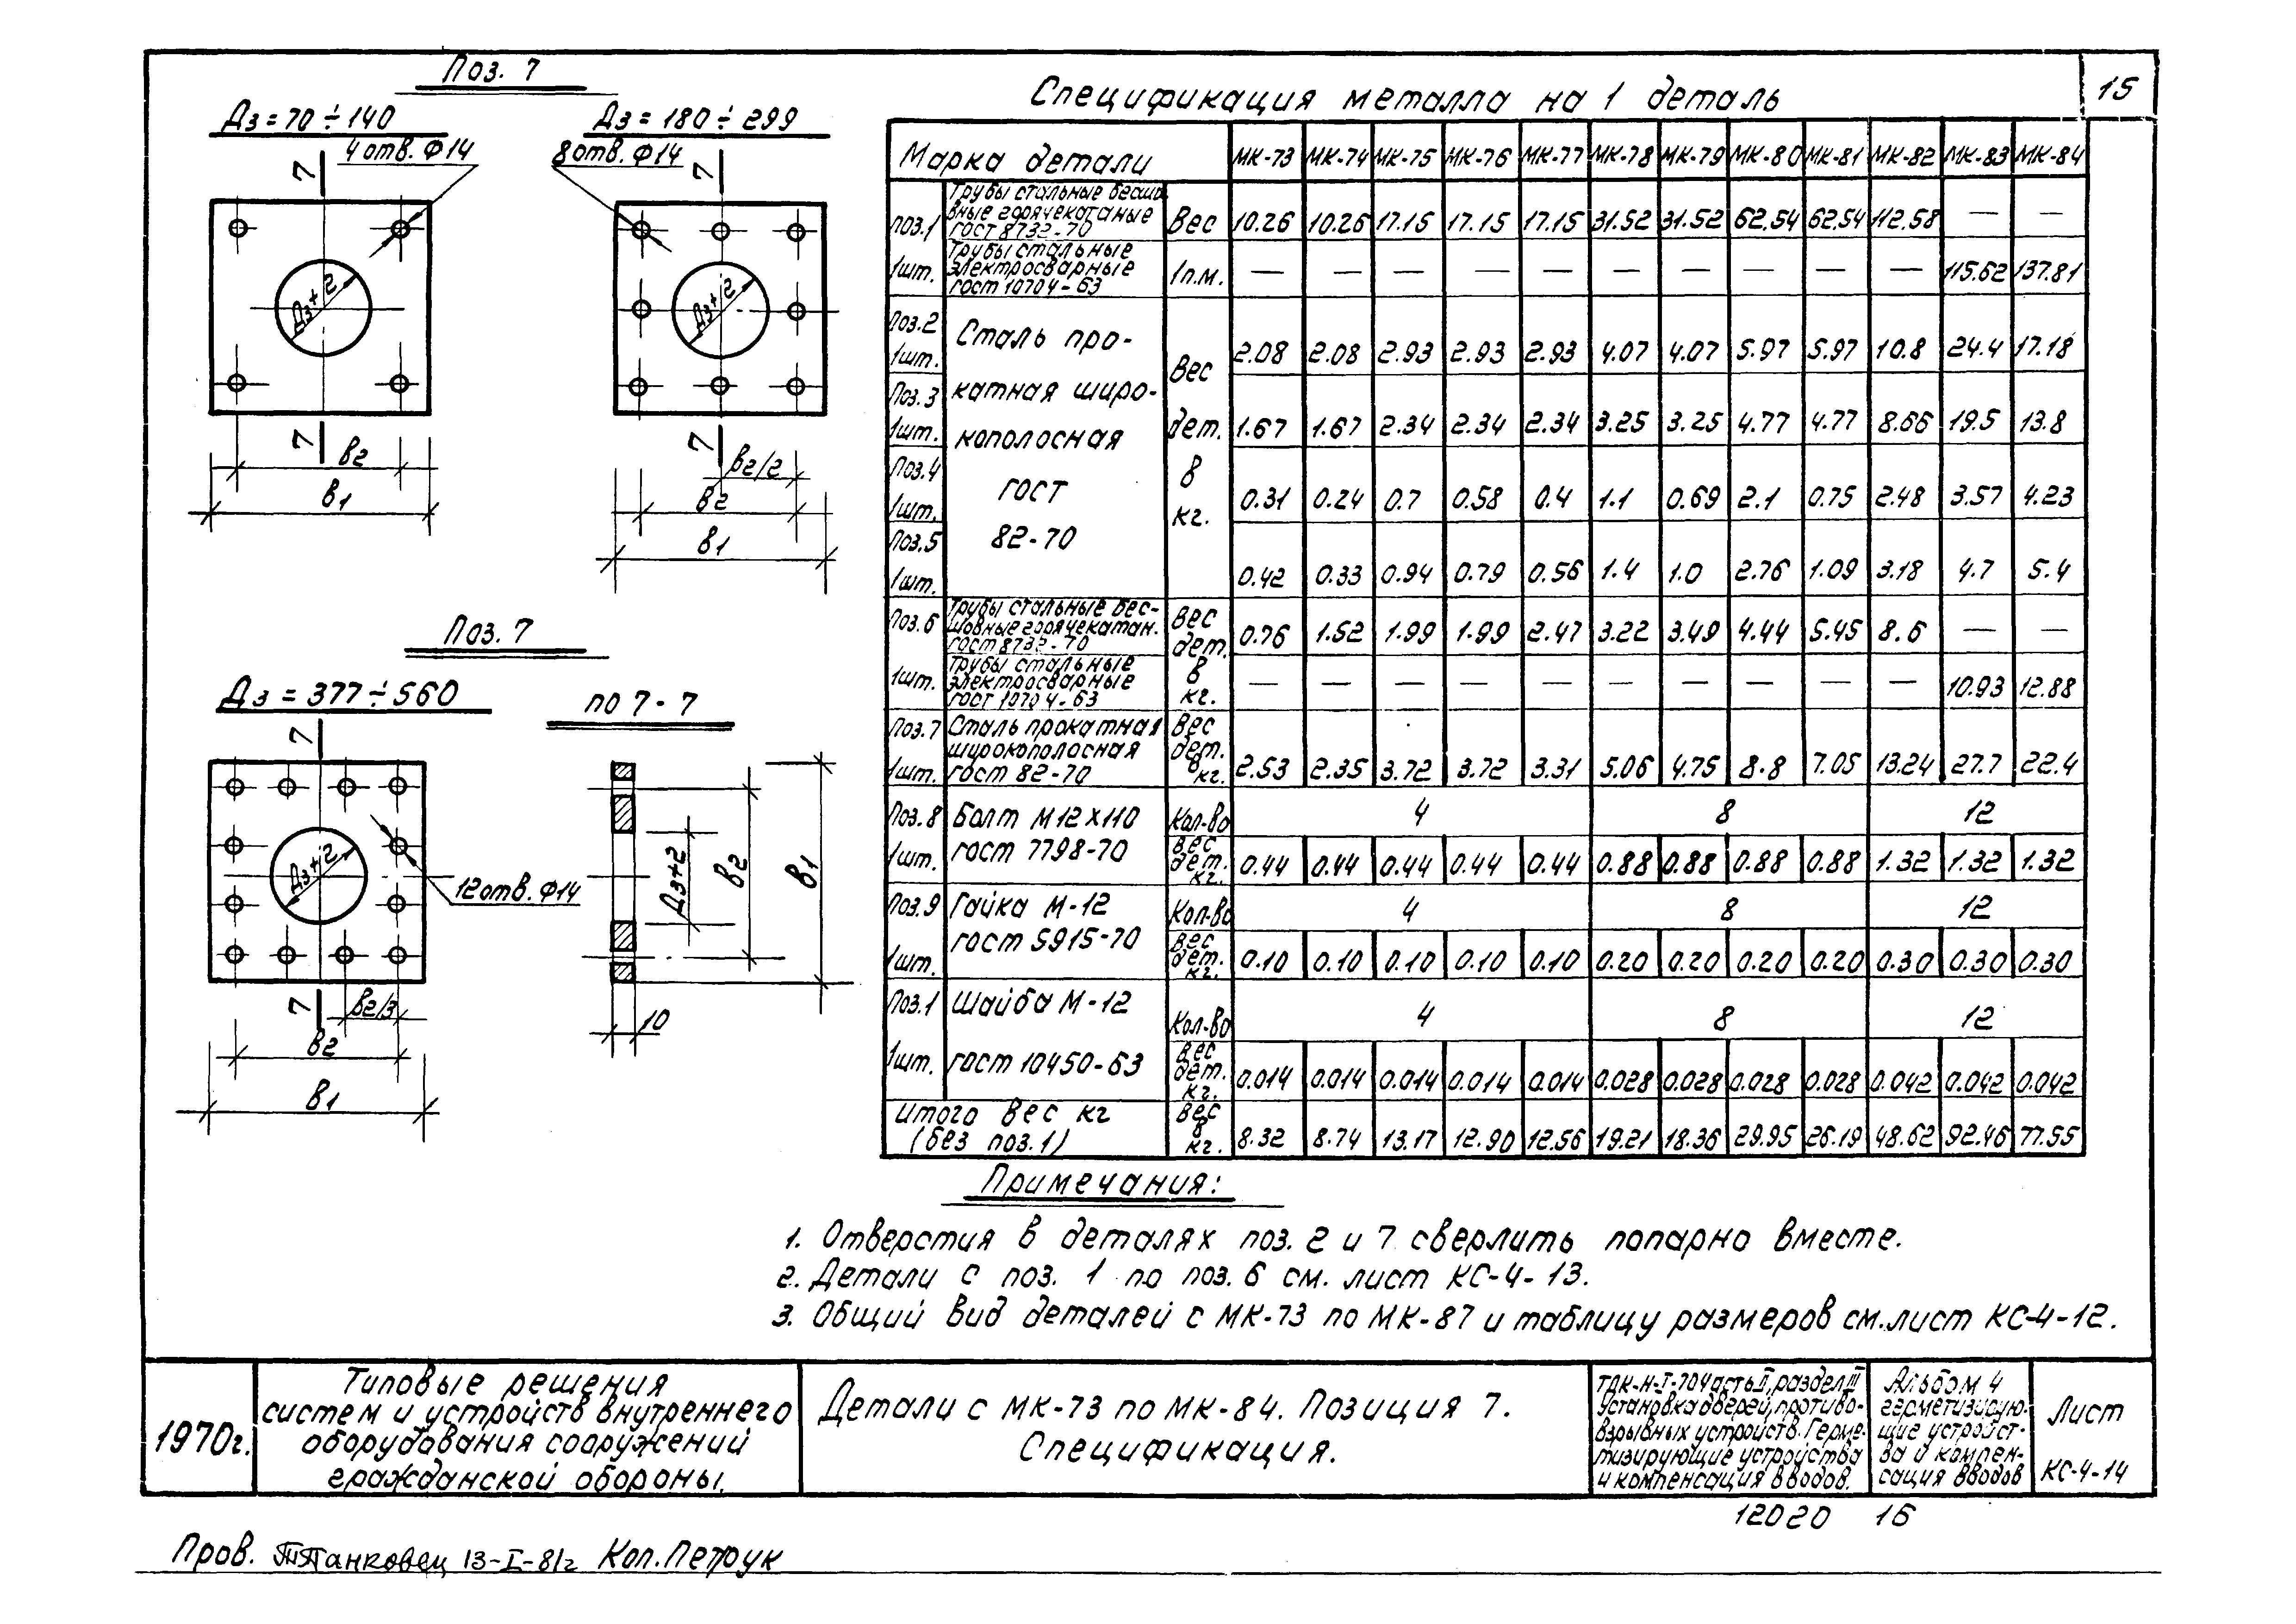 15
Поз. 7
Дз = 70 ÷ 140
4 отв. Ф14
7
Дз+2
7
в2
в1
Дз = 180 ÷ 299
8 отв. Ф14
7
Дз+2
7
в2/2
в2
в1
Поз. 7
Дз = 377 ÷ 560
7
Дз+2
12 отв. Ф14
7
в2/3
в2
в1
по 7-7
Дз+2
в2
в1
10
Спецификация металла на 1 деталь
Марка детали МК-73 МК-74 МК-75 МК-76 МК-77 МК-78 МК-79 МК-80 МК-81 МК-82 МК-83 МК-84
поз.1 1шт.
Трубы стальные бесшо
вные горячекатаные
гост 8732-70
Вес 10.26 10.26 17.15 17.15 17.15 31.52 31.52 62.54 62.54 112.58 — —
Трубы стальные
электросварные
гост 10704-63
1п.м. — — — — — — — — — — 115.62 137.81
Сталь про-
катная широ-
кополосная
гост
82-70
Вес
дет.
в
кг.
Поз.2 1шт. 2.08 2.08 2.93 2.93 2.93 4.07 4.07 5.97 5.97 10.8 24.4 17.18
Поз.3 1шт. 1.67 1.67 2.34 2.34 2.34 3.25 3.25 4.77 4.77 8.66 19.5 13.8
Поз.4 1шт. 0.31 0.24 0.7 0.58 0.4 1.1 0.69 2.1 0.75 2.48 3.57 4.23
Поз.5 1шт. 0.42 0.33 0.94 0.79 0.56 1.4 1.0 2.76 1.09 3.18 4.7 5.4
Поз.6 1шт.
Трубы стальные бес-
шовные горячекатан.
гост 8732-70
Вес дет. в кг.
0.76 1.52 1.99 1.99 2.47 3.22 3.49 4.44 5.45 8.6 — —
Трубы стальные
электросварные
гост 10704-63
— — — — — — — — — — 10.93 12.88
Поз.7 1шт.
Сталь прокатная
широкополосная
гост 82-70
Вес дет. в кг.
2.53 2.35 3.72 3.72 3.31 5.06 4.75 8.8 7.05 13.24 27.7 22.4
Поз.8 1шт.
Болт М12х110
гост 7798-70
Кол-во 4 8 12
вес дет. кг. 0.44 0.44 0.44 0.44 0.44 0.88 0.88 0.88 0.88 1.32 1.32 1.32
Поз.9 1шт.
Гайка М-12
гост 5915-70
Кол-во 4 8 12
вес дет. кг. 0.10 0.10 0.10 0.10 0.10 0.20 0.20 0.20 0.20 0.30 0.30 0.30
Поз.1 1шт.
Шайба М-12
гост 10450-63
Кол-во 4 8 12
вес дет. кг. 0.014 0.014 0.014 0.014 0.014 0.028 0.028 0.028 0.028 0.042 0.042 0.042
Итого вес кг
(без поз.1)
вес в кг. 8.32 8.74 13.17 12.90 12.56 19.21 18.36 29.95 26.19 48.62 92.46 77.55
Примечания:
1. Отверстия в деталях поз. 2 и 7 сверлить попарно вместе.
2. Детали с поз. 1 по поз. 6 см. лист КС-4-13.
3. Общий вид деталей с МК-73 по МК-87 и таблицу размеров см.лист КС-4-12.
1970г.
Типовые решения
систем и устройств внутреннего
оборудования сооружений
гражданской обороны.
Детали с МК-73 по МК-84. Позиция 7.
Спецификация.
ТДК-Н-I-70 Часть II, раздел III
Установка дверей, противо-
взрывных устройств. Герме-
тизирующие устройства
и компенсация вводов.
Альбом 4
герметизирую-
щие устройст-
ва и компен-
сация вводов
Лист
КС-4-14
12020 16
Пров. Танковец 13-I-81г Коп. Петрук